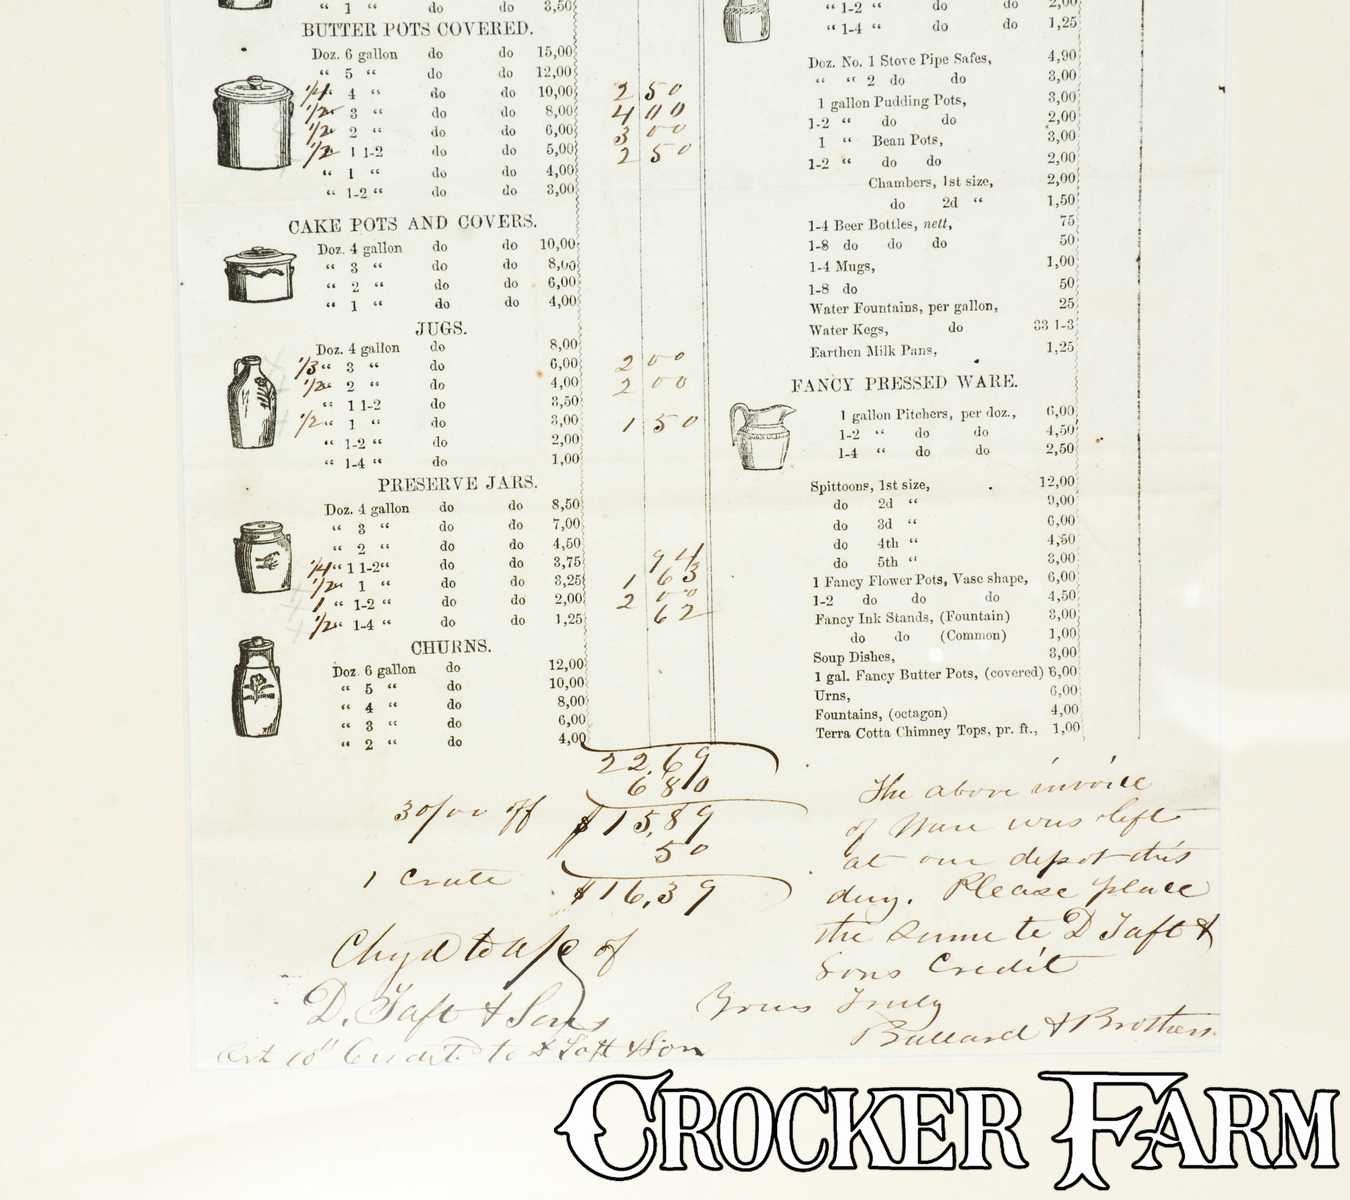 " 1 " do do 3,50
BUTTER POTS COVERED.
Doz. 6 gallon do do 15,00
" 5 " do do 12,00
1/4 " 4 " do do 10,00 2 50
1/2 " 3 " do do 8,00 4 00
1/2 " 2 " do do 6,00 3 00
1/2 " 1 1-2 do do 5,00 2 50
" 1 " do do 4,00
" 1-2 " do do 3,00
CAKE POTS AND COVERS.
Doz. 4 gallon do do 10,00
" 3 " do do 8,00
" 2 " do do 6,00
" 1 " do do 4,00
JUGS.
Doz. 4 gallon do 8,00
1/3 " 3 " do 6,00 2 00
1/2 " 2 " do 4,00 2 00
" 1 1-2 do 3,50
1/2 " 1 " do 3,00 1 50
" 1-2 " do 2,00
" 1-4 " do 1,00
PRESERVE JARS.
Doz. 4 gallon do do 8,50
" 3 " do do 7,00
" 2 " do do 4,50
1/4 " 1 1-2 " do do 3,75 94
1/2 " 1 " do do 3,25 1 63
1 " 1-2 " do do 2,00 2 00
1/2 " 1-4 " do do 1,25 62
CHURNS.
Doz 6 gallon do 12,00
" 5 " do 10,00
" 4 " do 8,00
" 3 " do 6,00
" 2 " do 4,00
22,69
6 80
30/00 off $15,89
50
1 Crate $16,39
Chg'd to a/c of
D. Taft & Sons
Oct 10" Credited to D Taft & Son
" 1-2 " do do 2,00
" 1-4 " do do 1,25
Doz. No. 1 Stove Pipe Safes, 4,90
" " 2 do do 3,00
1 gallon Pudding Pots, 3,00
1-2 " do do 2,00
1 " Bean Pots, 3,00
1-2 " do do 2,00
Chambers, 1st size, 2,00
do 2d " 1,50
1-4 Beer Bottles, nett, 75
1-8 do do do 50
1-4 Mugs, 1,00
1-8 do 50
Water Fountains, per gallon, 25
Water Kegs, do 33 1-3
Earthen Milk Pans, 1,25
FANCY PRESSED WARE.
1 gallon Pitchers, per doz., 6,00
1-2 " do do 4,50
1-4 " do do 2,50
Spittoons, 1st size, 12,00
do 2d " 9,00
do 3d " 6,00
do 4th " 4,50
do 5th " 3,00
1 Fancy Flower Pots, Vase shape, 6,00
1-2 do do do 4,50
Fancy Ink Stands, (Fountain) 3,00
do do (Common) 1,00
Soup Dishes, 3,00
1 gal. Fancy Butter Pots, (covered) 6,00
Urns, 6,00
Fountains, (octagon) 4,00
Terra Cotta Chimney Tops, pr. ft., 1,00
The above invoice
of Ware was left
at our depot this
day. Please place
the same to D Taft &
Sons Credit
Yours Truly
Bullard & Brothers.
CROCKER FARM